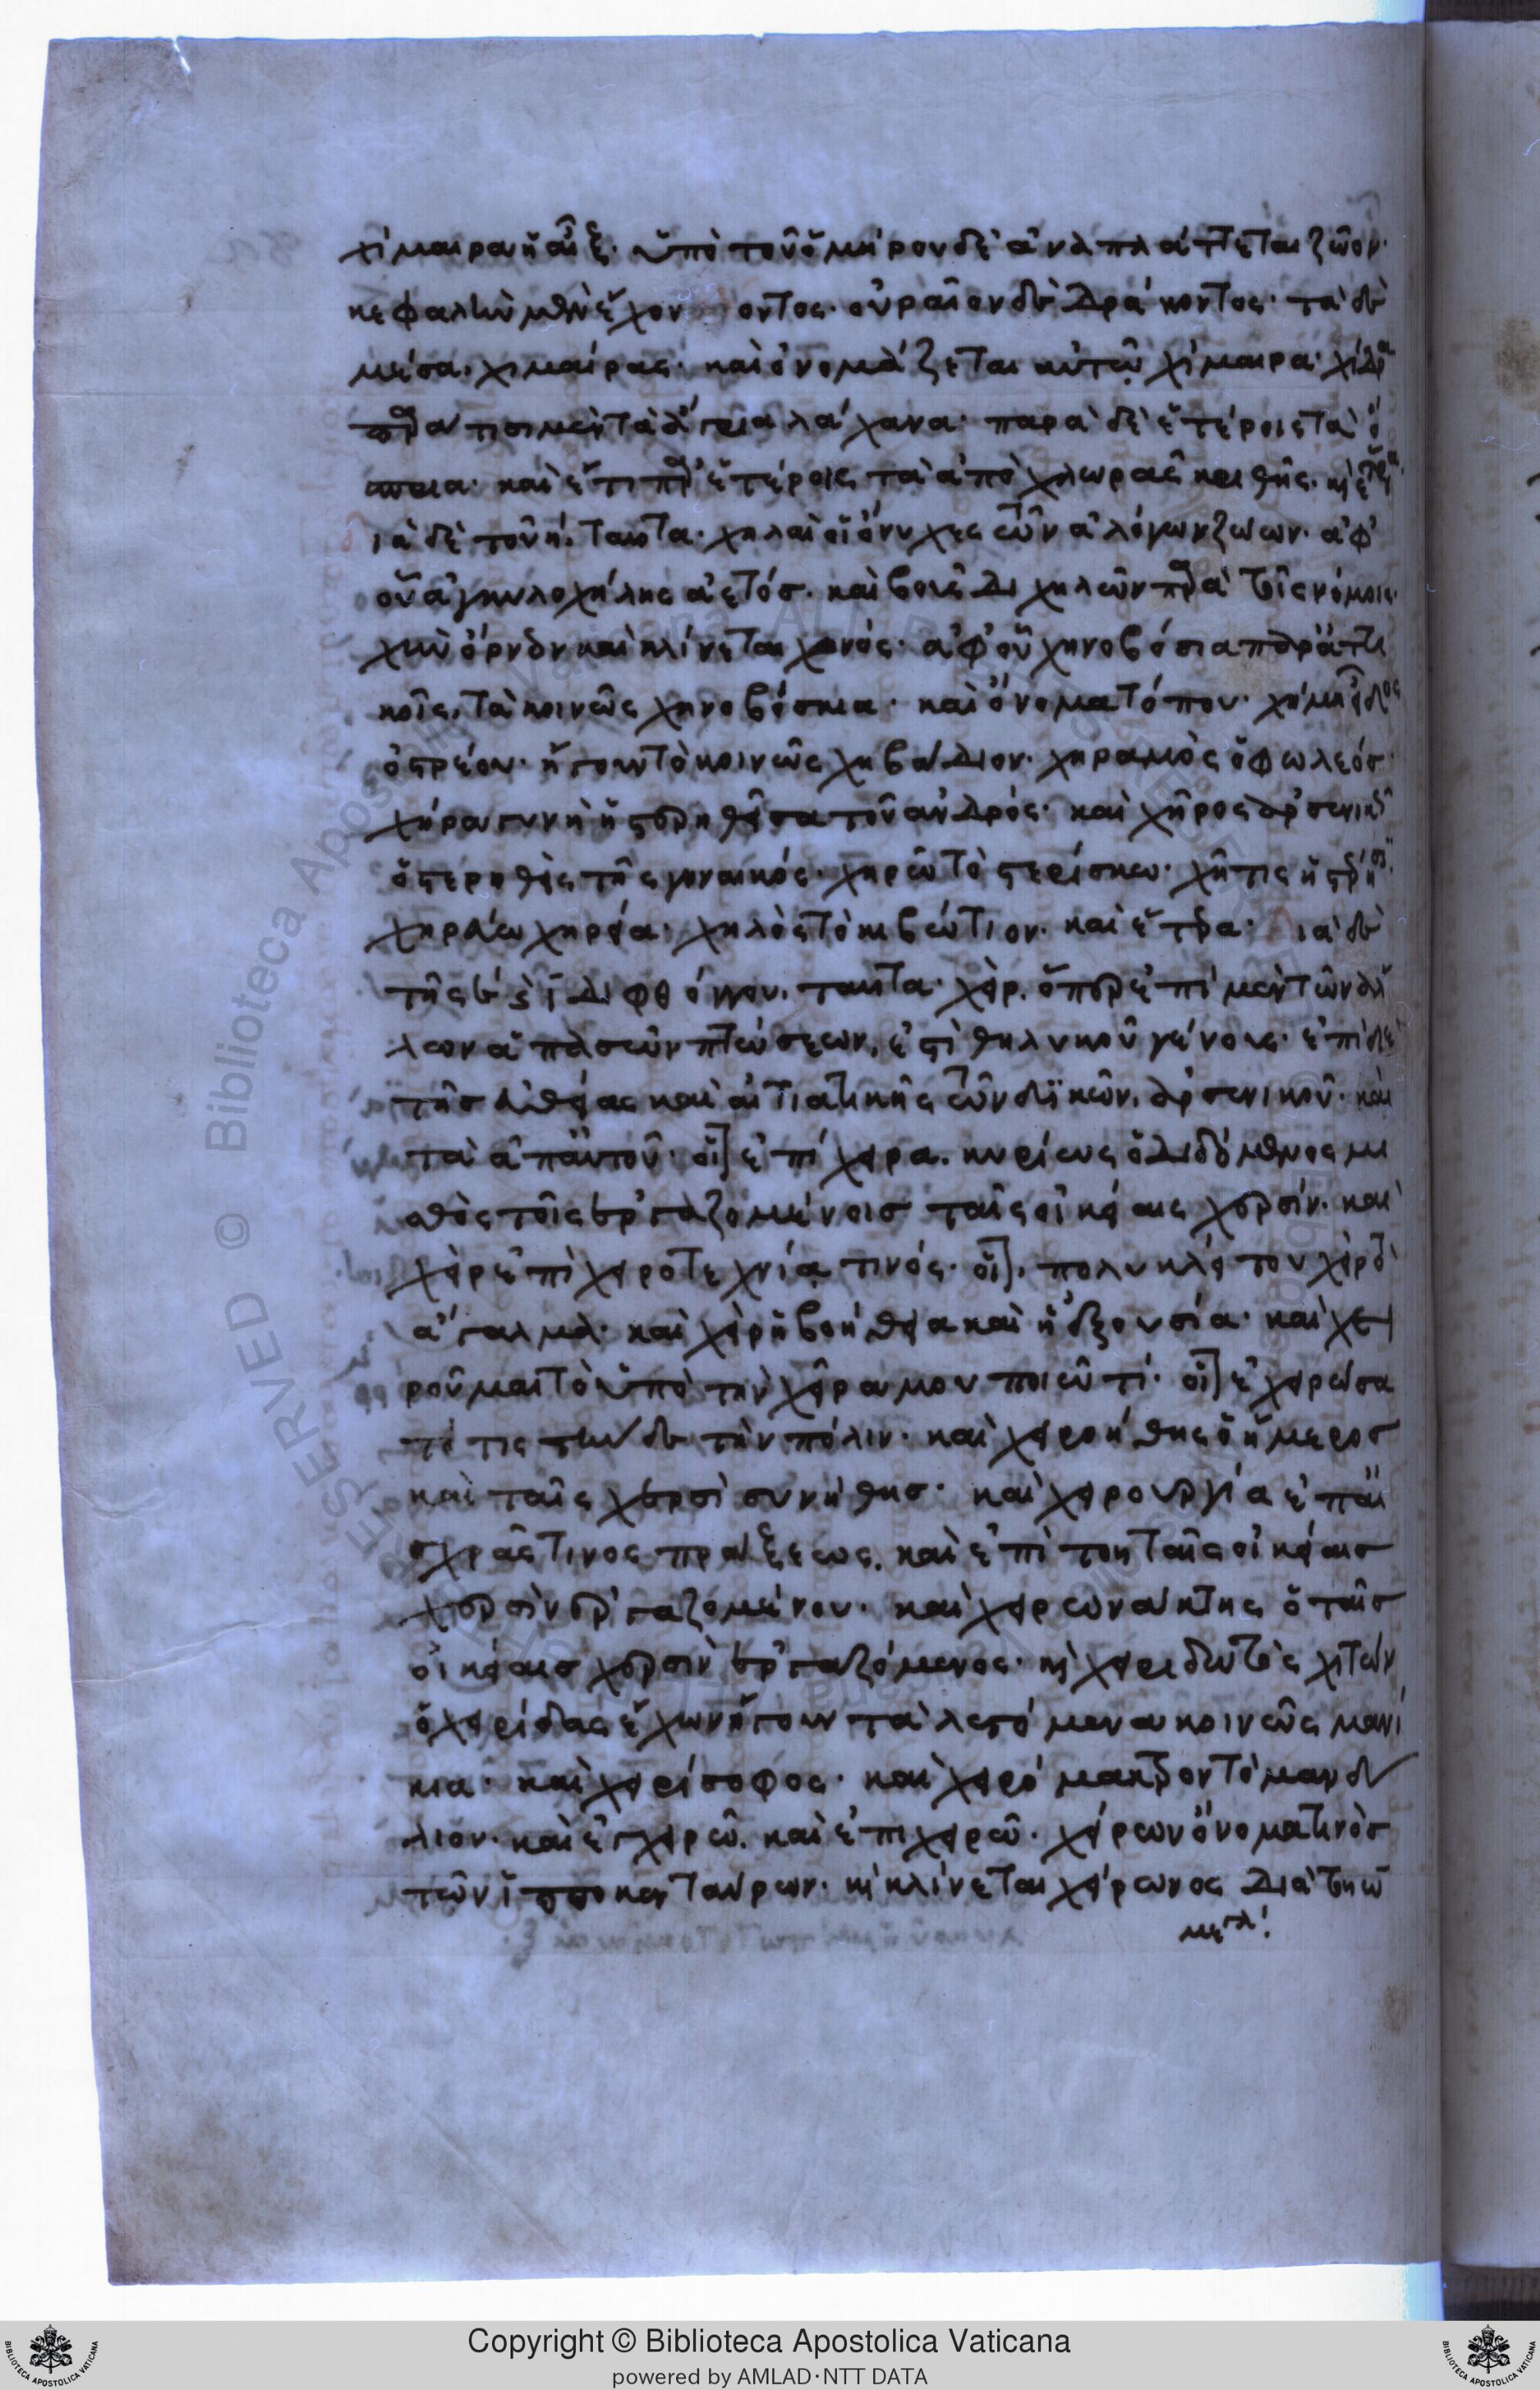 χίμαιρα ἡ αἴξ· ὑπὸ τοῦ ὁμήρου δὲ ἀναπλάττεται ζῶον·
κεφαλὴν μὲν ἔχον οντος· οὐραῖον δὲ δράκοντος· τὰ δὲ
μέσα, χιμαίρας· καὶ ὀνομάζεται αὐτῷ χίμαιρα· χίδρα
τισι μὲν τὰ ἄγρια λάχανα· παρὰ δὲ ἑτέροις τὰ ὄ
σπρια· καὶ ἔτι παρ' ἑτέροις τὰ ἀπὸ χλωρᾶς κριθῆς· καὶ ἕτερα·
ιὰ δὲ τοῦ η, ταῦτα· χηλαὶ οἱ ὄνυχες τῶν ἀλόγων ζώων· ἀφ'
οὗ ἀγκυλοχήλης ἀετός· καὶ βοῦς διχηλῶν παρὰ τοῖς νόμοις·
χὴν ὄρνεον καὶ κλίνεται χηνός· ἀφ' οὗ χηνοβόσια παρ' ἀττι
κοῖς, τὰ κοινῶς χηνοβόσκια· καὶ ὄνομα τόπου· χήμη εἶδος
ὀστρέου· ἤγουν τὸ κοινῶς χηβάδιον· χηραμὸς ὁ φωλεός·
χήρα γυνὴ ἡ στερηθεῖσα τοῦ ἀνδρός· καὶ χῆρος ἀρσενικὸν
ὁ στερηθεὶς τῆς γυναικός· χηρῶ τὸ στερίσκω· χῆτις ἡ στέρησις·
χηρεύω χηρεία· χηλὸς τὸ κιβώτιον· καὶ ἕτερα· ιὰ δὲ
τῆς ει διφθόγγου, ταῦτα· χεὶρ, ὅπερ ἐπὶ μὲν τῶν ἄλ
λων ἁπασῶν πτώσεων, ἐστὶ θηλυκοῦ γένους· ἐπὶ δὲ
τῆς εὐθείας καὶ αἰτιατικῆς τῶν δυϊκῶν, ἀρσενικοῦ· καὶ
τὰ ἀπ' αὐτοῦ· οἷον ἐπίχειρα, κυρίως ὁ διδόμενος μι
σθὸς τοῖς ἐργαζομένοις ταῖς οἰκείαις χερσίν· καὶ
χεὶρ ἐπὶ χειροτεχνίᾳ τινός· οἷον, πολυκλείτου χεὶρ τὸ
ἄγαλμα· καὶ χεὶρ ἡ βοήθεια καὶ ἡ ἐξουσία· καὶ χει
ροῦμαι τὸ ὑπὸ τὴν χεῖρα μου ποιῶ τί· οἷον ἐχειρώσα
τό τις τήνδε τὴν πόλιν· καὶ χειροήθης ὁ ἥμερος
καὶ ταῖς χερσὶ συνήθης· καὶ χειρουργία ἐπ' αἰ
σχρᾶς τινος πράξεως, καὶ ἐπὶ του ταῖς οἰκείαις
χερσὶν ἐργαζομένου· καὶ χειρωνάκτης ὁ ταῖς
οἰκείαις χερσὶν ἐργαζόμενος· καὶ χειριδωτὸς χιτὼν
ὁ χειρίδας ἔχων ἤγουν τὰ λεγόμενα κοινῶς μανί
κια· καὶ χειρίσοφος· καὶ χειρόμακτρον τὸ μανδή
λιον· καὶ ἐγχειρῶ, καὶ ἐπιχειρῶ· χείρων ὄνομα τινὸς
τῶν ἱπποκενταύρων· καὶ κλίνεται χείρωνος διὰ τοῦ ω
μεγάλου